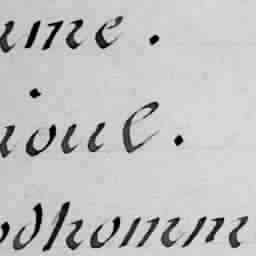 ume.
ioul.
odhomm